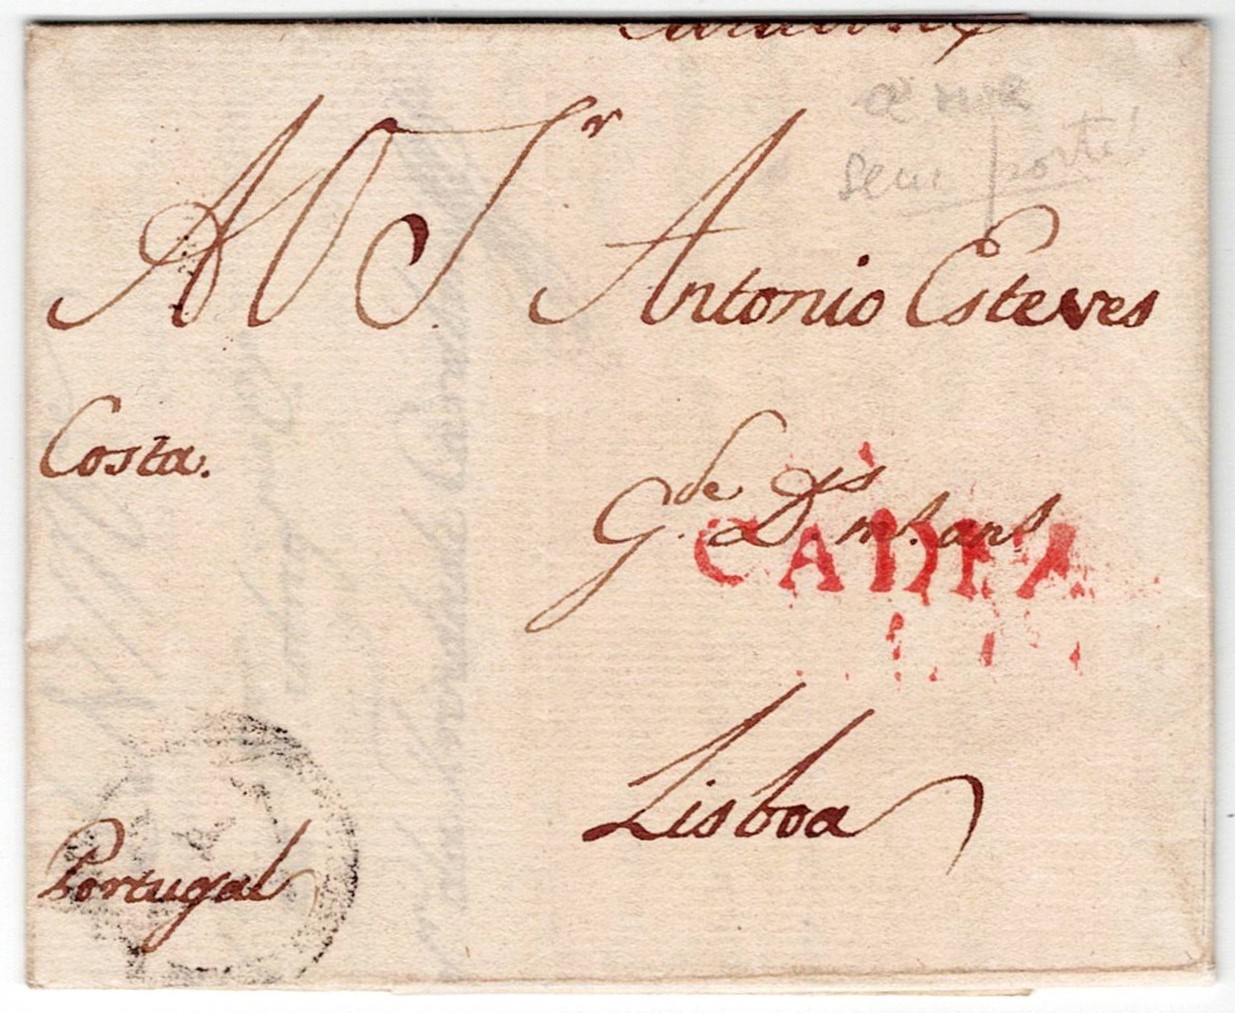 AO S.r Antonio Esteves
Costa.
G.de D.s m.s an.s
CADIZ
Lisboa
Portugal
sem porte!